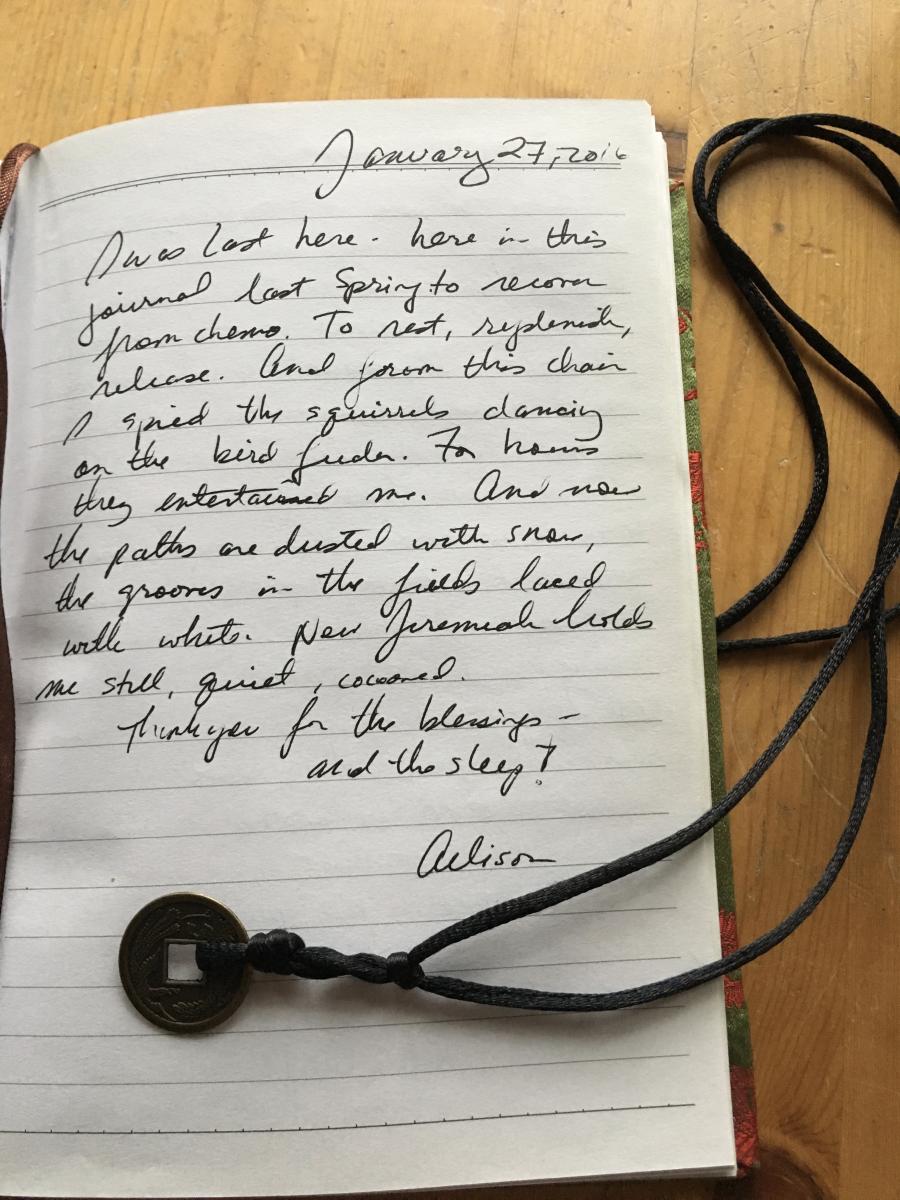 January 27, 2016
I was last here - here in this
journal last Spring to recover
from chemo. To rest, replenish,
release. And from this chair
I spied the squirrels dancing
on the bird feeder. For hours
they entertained me. And now
the paths are dusted with snow,
the grooves in the fields laced
with white. New Jeremiah holds
me still, quiet, cocooned.
Thank you for the blessings -
and the sleep!
Allison